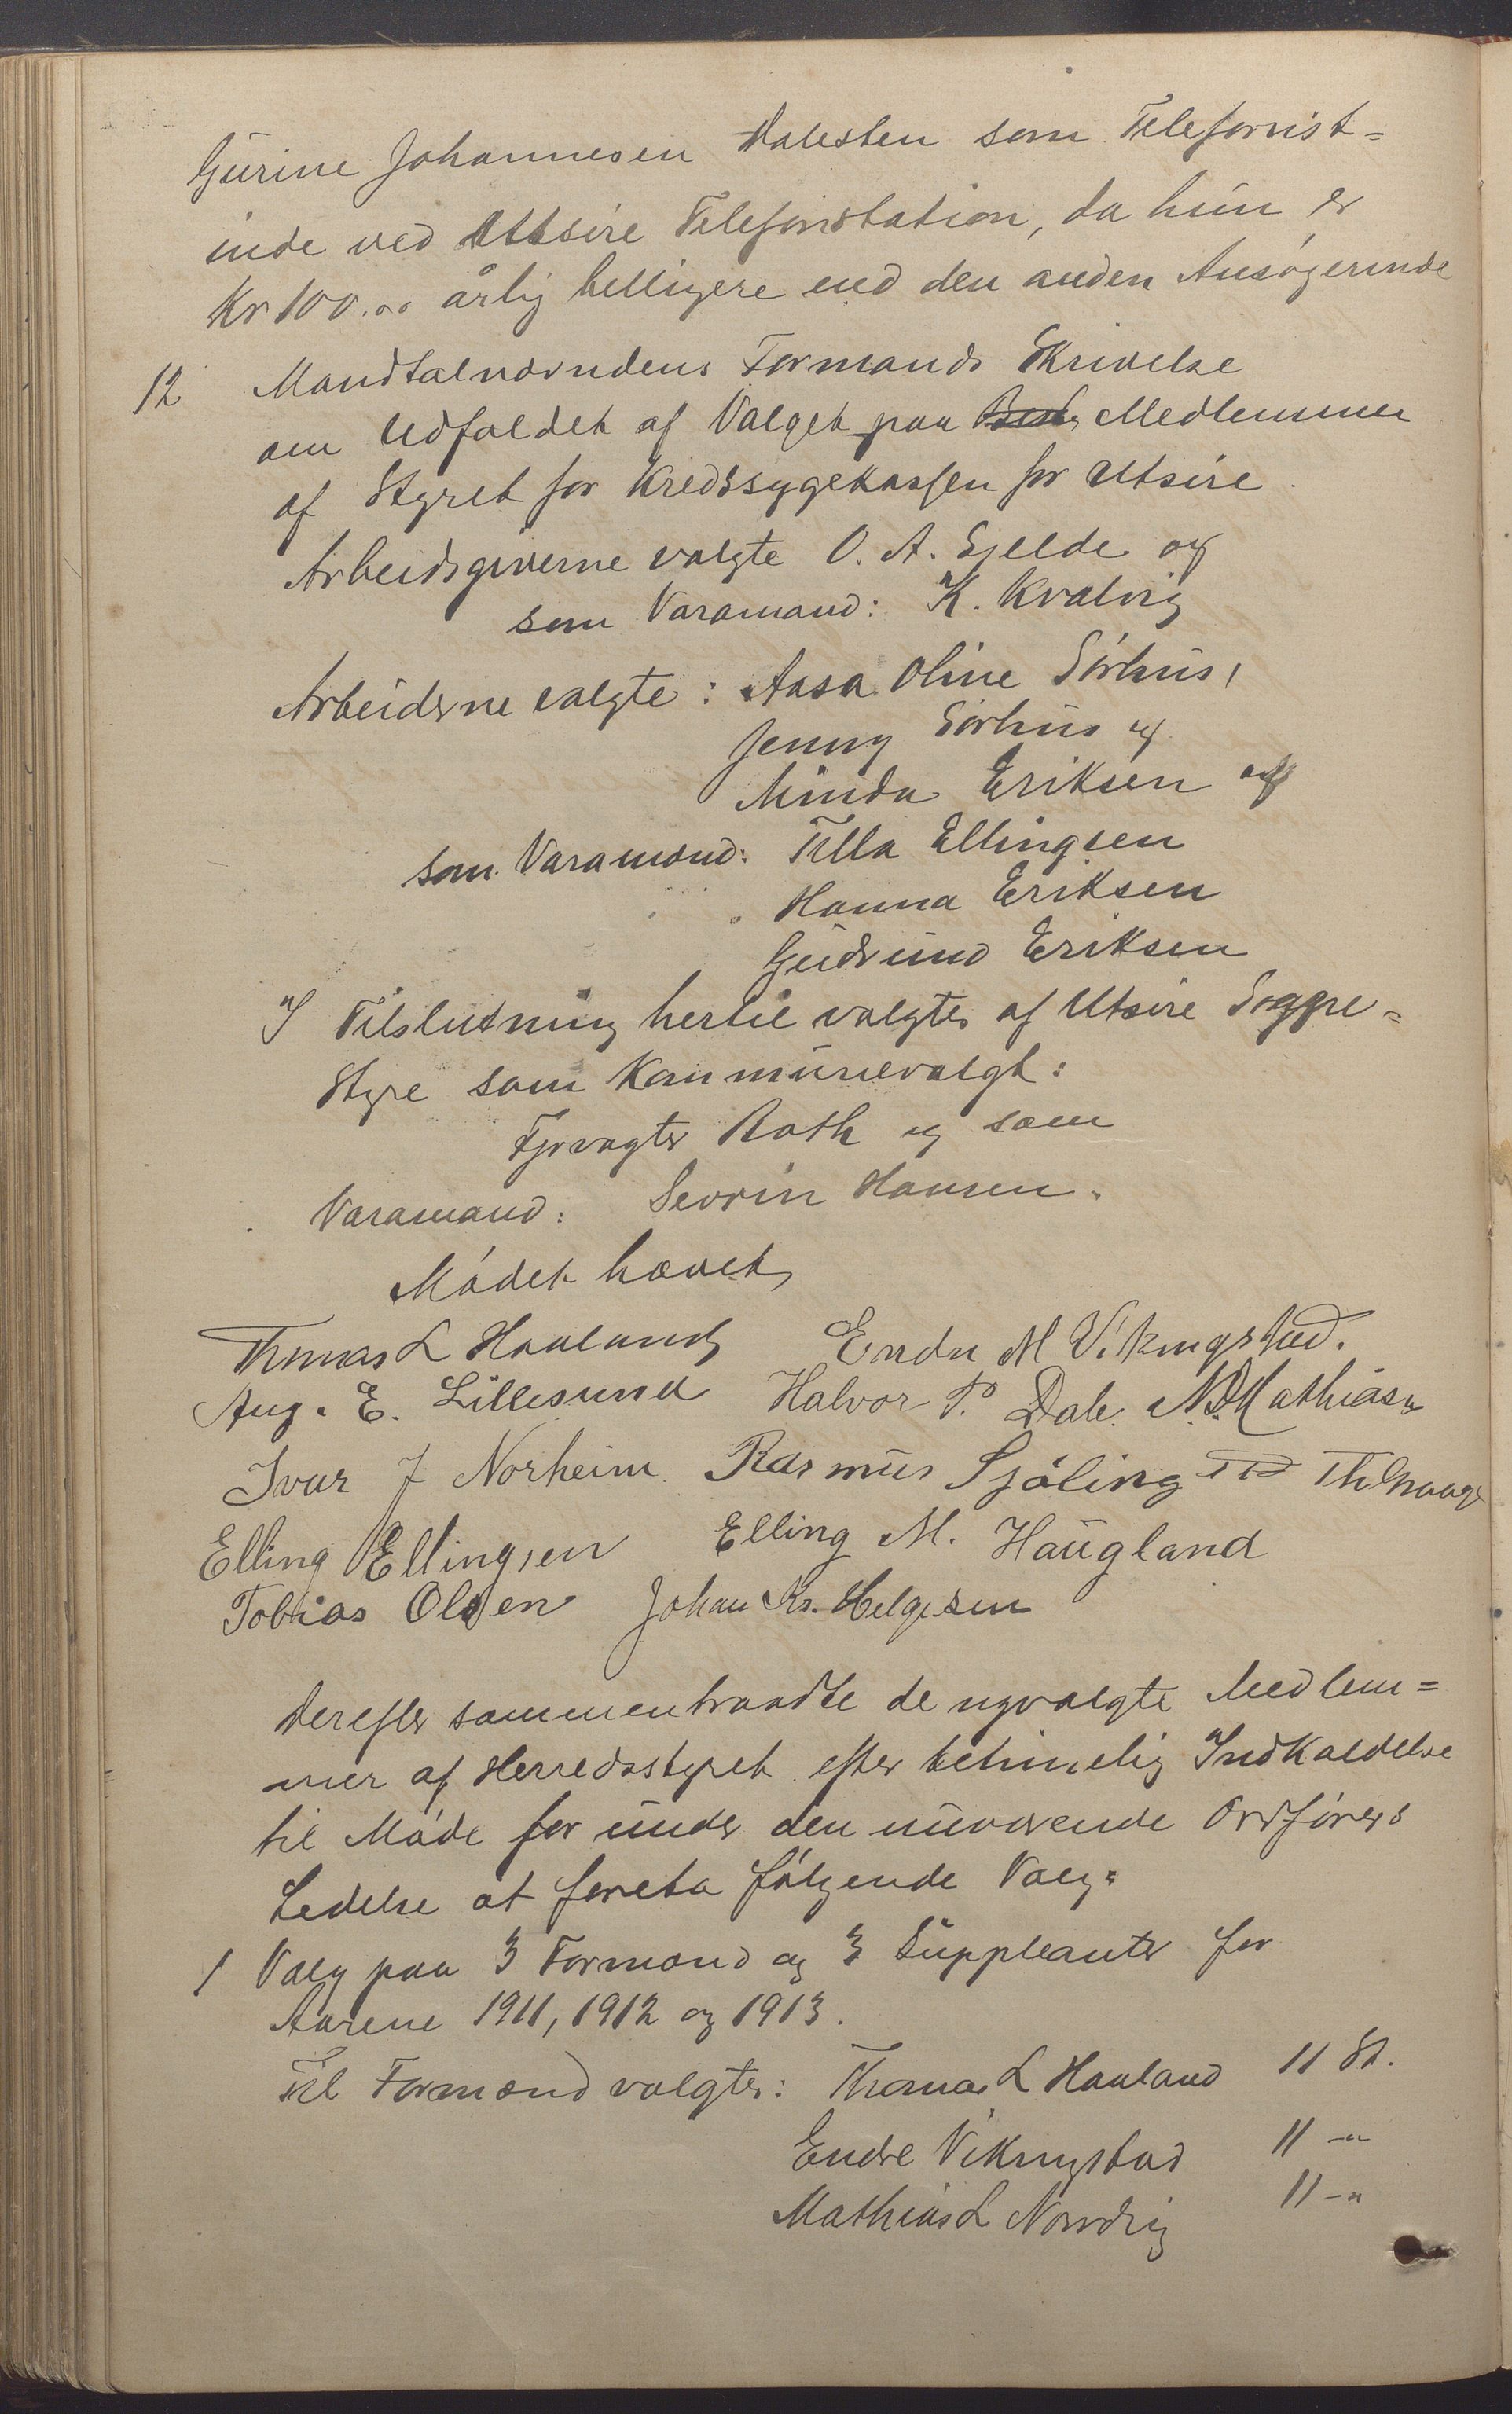 Gurine Johannesen Dalesten som Telefonist=
inde ved Utsire Telefonstation, da hun er
Kr 100.00 årlig belligere end den anden Ansøgerinde
12 Mandtalnævndens Formands Skrivelse
om Udfaldet af Valget paa Medlemmer
af Styret for Kredssygekassen for Utsire.
Arbeidsgiverne valgte O. A. Gjelde og
som Varamand: K. Kvalvig
Arbeiderne valgte: Aasa Oline Sørhus,
Jenny Sørhus og
Minda Eriksen og
som Varamænd: Tilla Ellingsen
" " Hanna Eriksen
Gudrund Eriksen
I Tilslutning hertil valgtes af Utsire Sogne=
Styre som Kommunevalgt:
Fyrvogter Roth og som
Varamand: Sevrin Hansen.
Mødet hævet
Thomas L Haaland Endre M Vikingstad.
Aug. E. Lillesund Halvor P. Dale. N. Mathiasen
Ivar J Norheim. Rasmus Sjøling
Elling Ellingsen Elling M. Haugland
Tobias Olsen Johan Kr. Helgesen
Derefter sammentraadte de nyvalgte Medlem=
mer af Herredsstyret efter betimelig Indkaldelse
til Møde for under den nuværende Ordførers
Ledelse at foreta følgende Valg:
1 Valg paa 3 Formænd og 3 Suppleanter for
Aarene 1911, 1912 og 1913.
Til Formænd valgtes: Thomas L Haaland 11 St.
Endre Vikingstad 11 -"
Mathias L Nordvig 11 -"